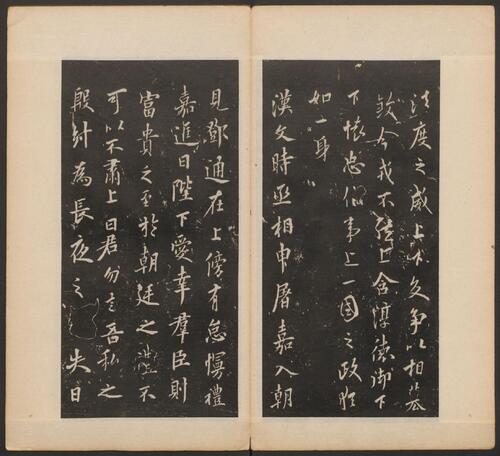 法度之威上下交爭以相篡
弒今戎不然上含淳德御下
下懷忠信事上一國之政猶
如一身
漢文時丞相申屠嘉入朝
見鄧通在上傍有怠慢禮
嘉進曰陛下愛幸羣臣則
富貴之至於朝廷之禮不
可以不肅上曰君勿言吾私之
殷紂為長夜之失日